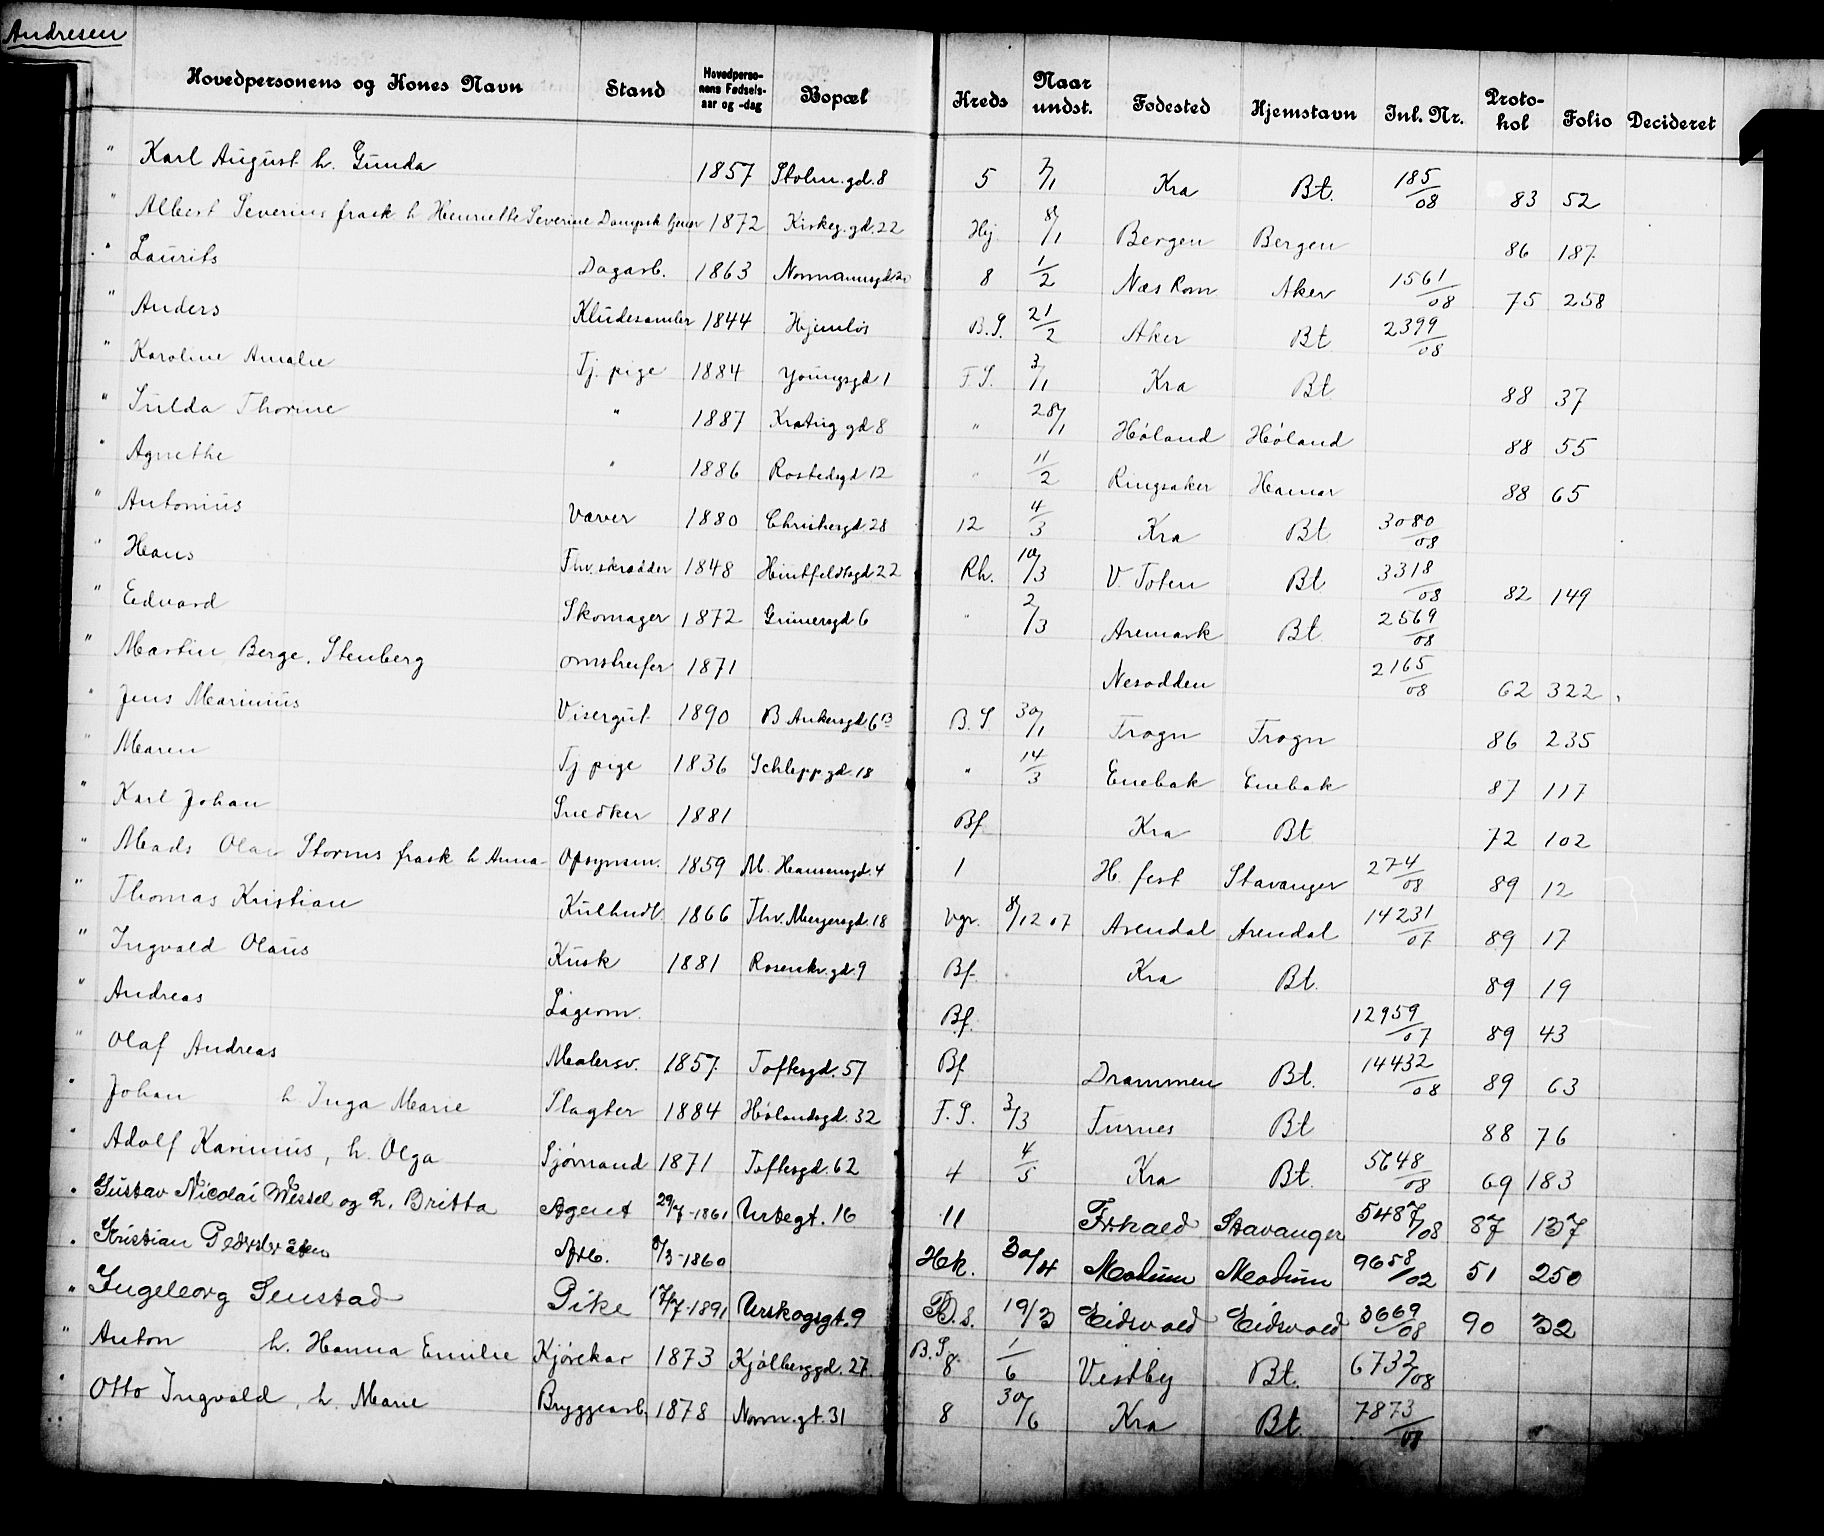 Andresen
Hovedpersonens og Kones Navn Stand Hovedpersonens Fødselsaar og -dag Bopæl Kreds Naar undst. Fødested Hjemstavn Inl. Nr. Protokol Folio Decideret
" Karl August h. Gunda 1857 Stolm.gd. 8 5 7/1 Kra Bt. 185/08 83 52
" Albert Severius frask. h. Henriette Severine 1872 Kirkeg.gd. 22 Hj. 8/1 Bergen Bergen 86 187
" Laurits Dagarb. 1863 8 1/2 Næs Rom Aker 1561/08 75 258
" Anders Kludesamler 1844 Hjemløs B.S. 21/2 Aker Bt 2399/08
" Karoline Amalie Tj. pige 1884 Youngsgd 1 F.S. 3/1 Kra Bt 88 37
" Thorine " 1887 8 " 28/1 Høland Høland 88 55
" Agnethe " 1886 Rostedsgd 12 " 11/2 Ringsaker Hamar 88 65
" Antonius Væver 1880 Christiersgd 28 12 4/3 Kra Bt 3080/08
" Hans Fhv. skrædder 1848 22 Rh. 10/3 V. Toten Bt 3318/08 82 149
" Edvard Skomager 1872 Grünersgd 6 " 2/3 Aremark Bt. 2569/08
" Martin Berge, Stenberg omstreifer 1871 Nesodden 2165/08 62 322
" Jens Marinius Visergut 1890 B Ankersgd 6 B B.S 30/1 Frogn Frogn 86 235
" Maren Tj pige 1836 Schleppgd. 18 " 14/3 Enebak Enebak 87 117
" Karl Johan Snedker 1881 Bf. Kra Bt 72 102
" Mads Olai Storms frask h Anna Opsynsm. 1859 M. Hansensgd. 4 1 H. fest Stavanger 274/08 89 12
" Thomas Kristian Kulhndl. 1866 Thv. Meyersgd. 18 Vgr. 8/12 07 Arendal Arendal 14231/07 89 17
" Ingvald Olaus Kusk 1881 Rosenkr.gd. 9 Bf. Kra Bt. 89 19
" Andreas Lagerm. Bf. 12959/07 89 43
" Olaf Andreas Malersv. 1857 Toftesgd. 57 Bf Drammen Bt. 14432/08 89 63
" Johan h. Inga Marie Slagter 1884 Hølandsgd. 32 F.S. 3/3 Furnes Bt 88 76
" Adolf Karinius, h. Olga Sjømand 1871 Toftesgd. 62 4 4/5 Kra Bt. 5648/08 69 183
" Gustav Nicolai Wessel og h. Britta Agent 29/7-1861 Urtegt. 16 11 Frhald Stavanger 5487/08 87 137
" Kristian Pedersbråten Arb. 8/3-1860 Hek. 30/4 Modum Modum 9658/02 51 250
" Ingeborg Senstad Pike 17/7-1891 Urskogsgt. 9 B.s. 19/3 Eidsvold Eidsvold 3669/08 90 32
" Anton h. Hanna Emilie Kjørekar 1873 Kjølberggd. 27. B.S. 8 1/6 Vestby Bt. 6732/08
" Otto Ingvald, h. Marie Bryggearb. 1878 Norm.gt. 31 8 30/6 Kra Bt. 7873/08